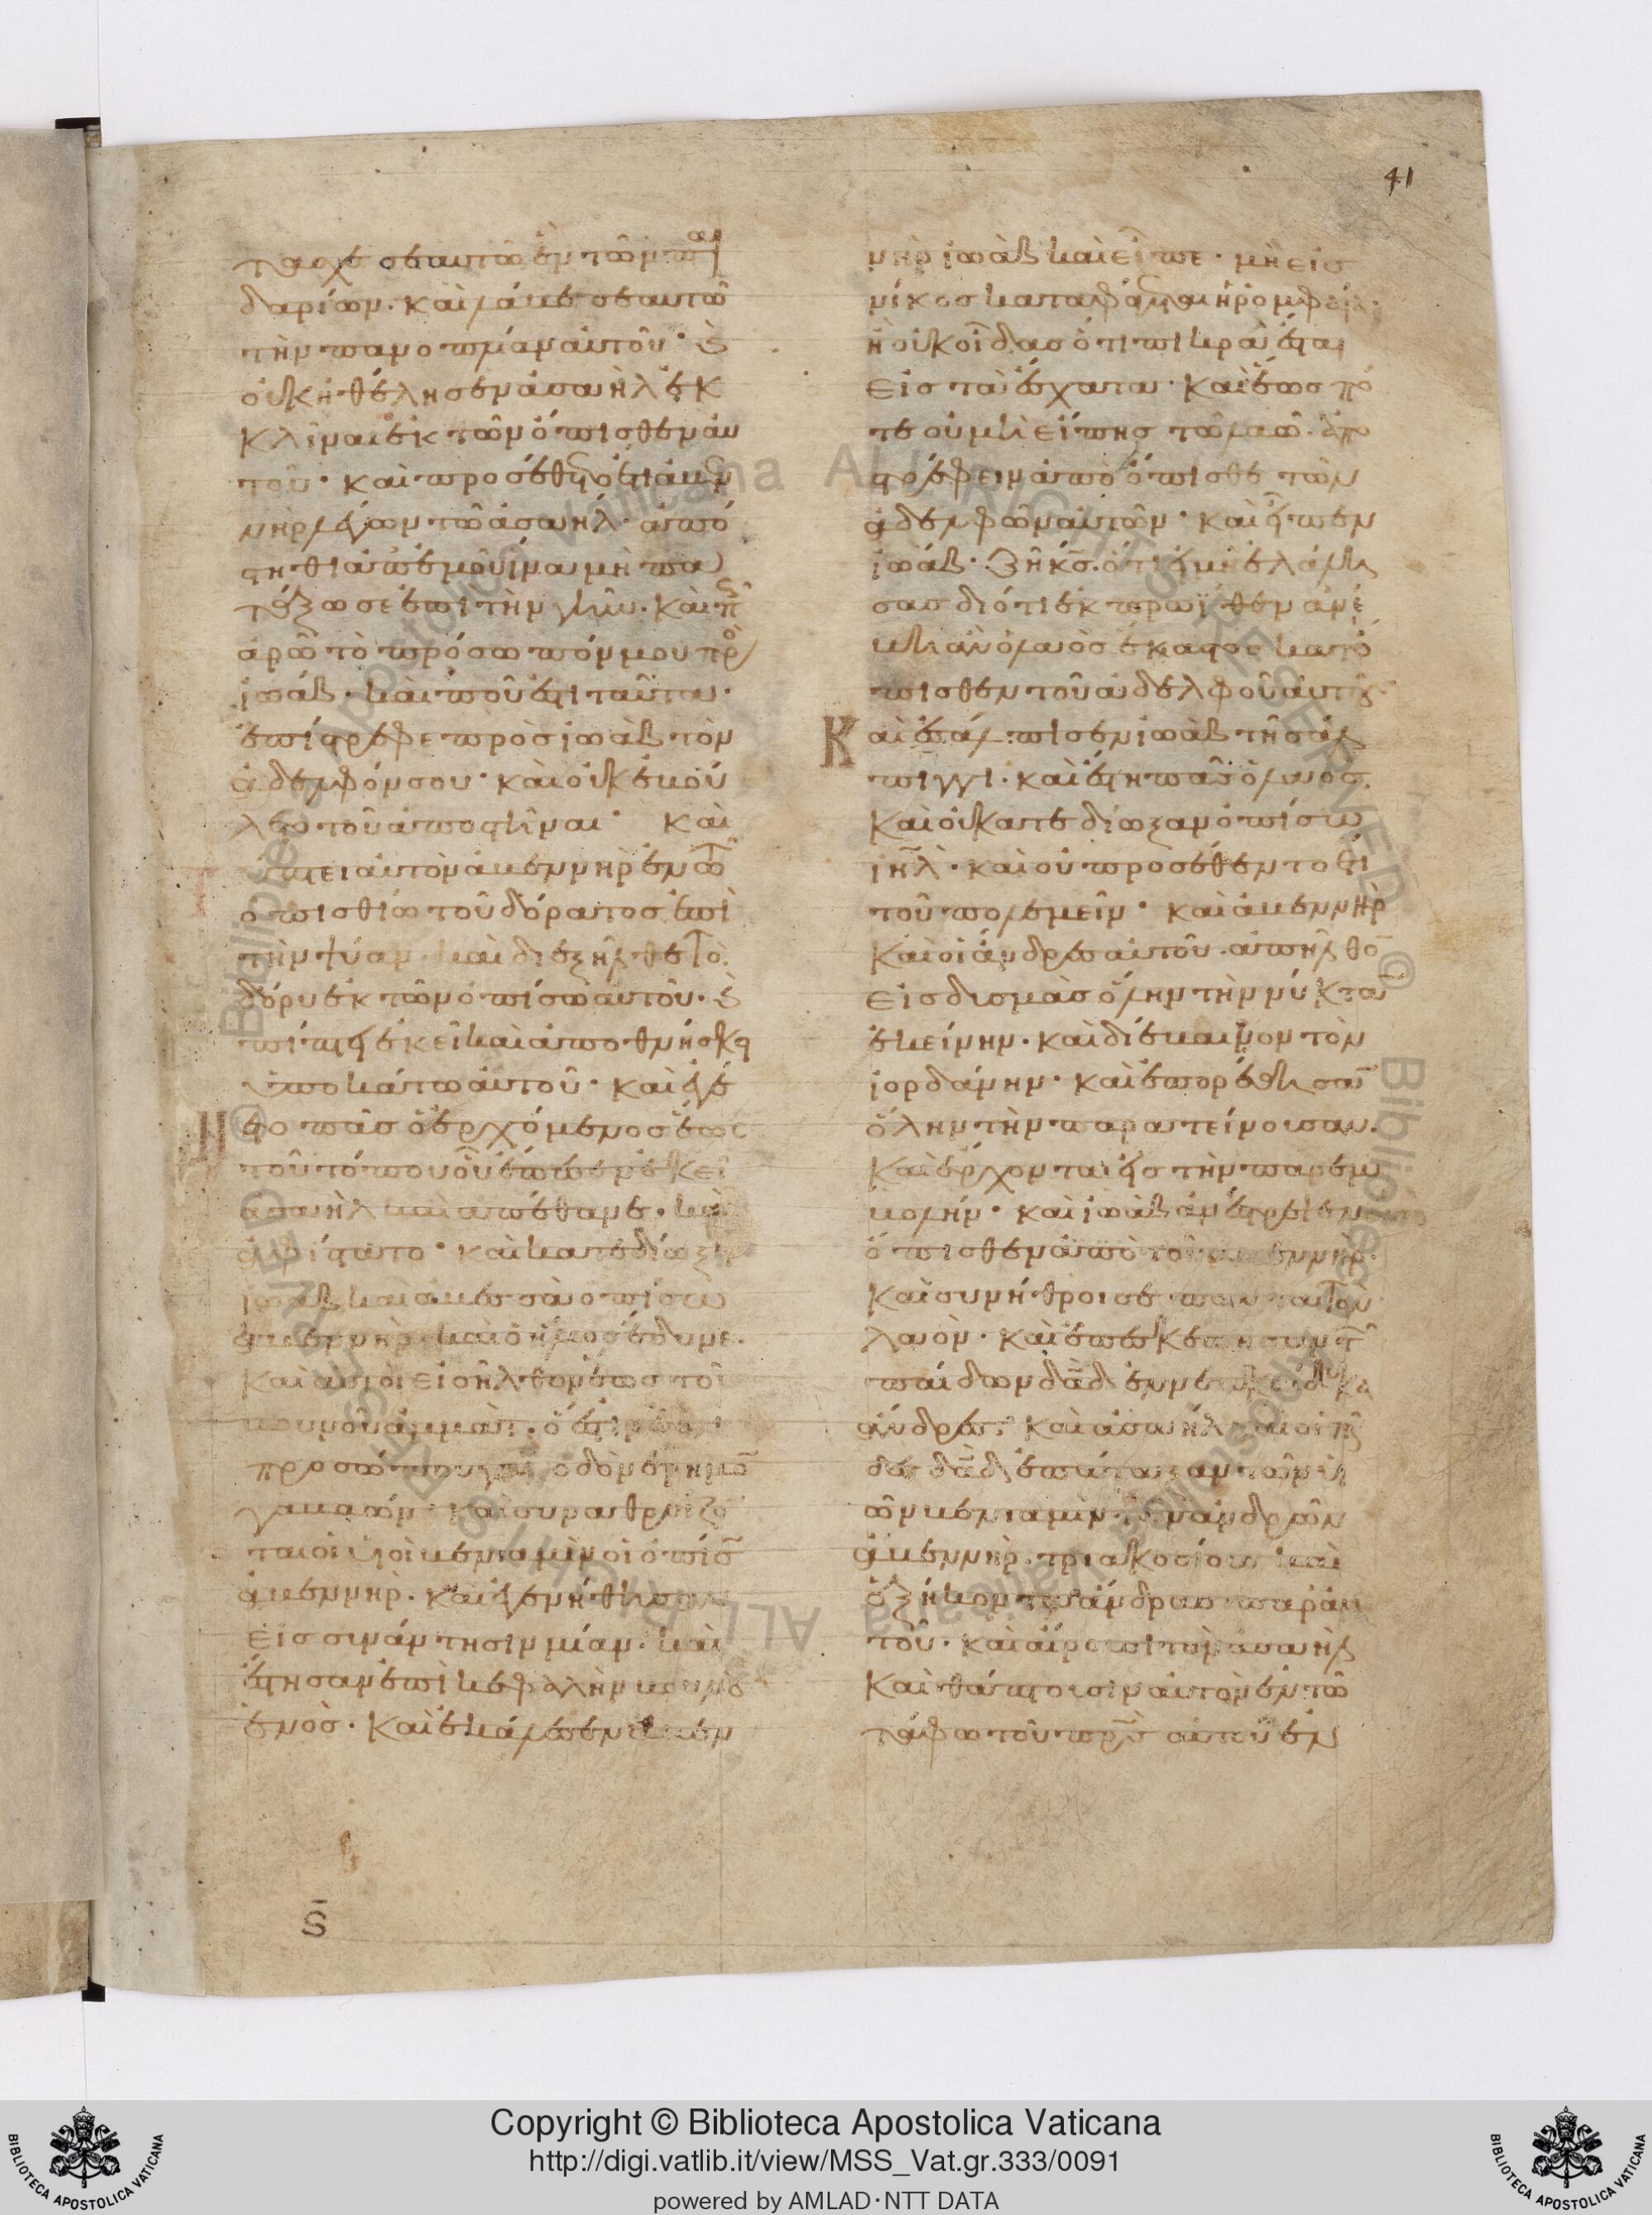 41
τασχε σεαυτῶ ἐν τῶν παι
δαρίων. καὶ λάβε σεαυτῶ
τὴν πανοπλίαν αὐτοῦ· καὶ
οὐκ ἠθέλησεν ἀσαὴλ ἐκ
κλῖναι ἐκ τῶν ὄπισθεν αὐ
τοῦ· καὶ προσέθετο ἔτι ἀβεν
νὴρ λέγων τῶ ἀσαήλ· ἀπό
στηθι ἀπ' ἐμοῦ ἵνα μὴ πα
τάξω σε ἐπὶ τὴν γῆν. καὶ πῶς
ἀρῶ τὸ πρόσωπόν μου πρὸς
ἰωάβ. καὶ ποῦ ἐστι ταῦτα.
ἐπίστρεφε πρὸς ἰωὰβ τὸν
ἀδελφόν σου· καὶ οὐκ ἐβού
λετο τοῦ ἀποστῆναι· καὶ
τύπτει αὐτὸν ἀβεννὴρ ἐν τῶ
ὀπισθίω τοῦ δόρατος ἐπὶ
τὴν ψύαν. καὶ διεξῆλθε τὸ
δόρυ ἐκ τῶν ὀπίσω αὐτοῦ. καὶ
πίπτει ἐκεῖ καὶ ἀποθνήσκει
ὑποκάτω αὐτοῦ· καὶ ἐγέ
νετο πᾶς ὁ ἐρχόμενος ἕως
τοῦ τόπου οὗ ἔπεσεν ἐκεῖ
ἀσαὴλ καὶ ἀπέθανε. καὶ
ὑφίστατο· καὶ κατεδίωξεν
ἰωὰβ καὶ ἀβεσσὰ ὀπίσω
ἀβεννὴρ. καὶ ὁ ἥλιος ἔδυνε.
καὶ αὐτοὶ εἰσῆλθον ἕως τοῦ
βουνοῦ ἀμμάν. ὅ ἐστιν ἐπὶ
προσώπου γαῒ ὁδὸν ἔρημον
γαβαών· καὶ συναθροίζον
ται οἱ υἱοὶ βενιαμὶν οἱ ὀπίσω
ἀβεννὴρ. καὶ ἐγενήθησαν
εἰς συνάντησιν μίαν. καὶ
ἔστησαν ἐπὶ κεφαλὴν βουνοῦ
ἑνὸς. καὶ ἐκάλεσεν ἀβεν
νὴρ ἰωὰβ καὶ εἶπε· μὴ εἰς
νίκος καταφάγεται ἡ ῥομφαία.
ἢ οὐκ οἶδας ὅτι πικρὰ ἔσται
εἰς τὰ ἔσχατα· καὶ ἕως πό
τε οὐ μὴ εἴπης τῶ λαῶ. ἀπο
στρέφειν ἀπὸ ὄπισθε τῶν
ἀδελφῶν αὐτῶν· καὶ εἶπεν
ἰωάβ· ζῆ κς̄. ὅτι εἰ μὴ ἐλάλη
σας διότι ἐκ πρωΐθεν ἀνέ
βη ἂν ὁ λαὸς ἕκαστος κατό
πισθεν τοῦ ἀδελφοῦ αὐτοῦ
Καὶ ἐσάλπισεν ἰωὰβ τῆ σάλ
πιγγι. καὶ ἔστη πᾶς ὁ λαὸς.
καὶ οὐ κατεδίωξαν ὀπίσω
ιηλ̄· καὶ οὐ προσέθεντο ἔτι
τοῦ πολεμεῖν· καὶ ἀβεννὴρ
καὶ οἱ ἄνδρες αὐτοῦ. ἀπῆλθον
εἰς δυσμὰς ὅλην τὴν νύκτα
ἐκείνην. καὶ διέβαινον τὸν
ἰορδάνην· καὶ ἐπορεύθησαν
ὅλην τὴν παρατείνουσαν.
καὶ ἔρχονται εἰς τὴν παρεμ
βολήν· καὶ ἰωὰβ ἀνέστρεψεν
ὄπισθεν ἀπὸ τοῦ ἀβεννὴρ.
καὶ συνήθροισε πάντα τὸν
λαόν. καὶ ἐπεσκέπησαν τῶν
παίδων δᾱδ ἐννεακαίδεκα
ἄνδρες· καὶ ἀσαήλ. καὶ οἱ παῖ
δες δᾱδ ἐπάταξαν τῶν υἱ
ῶν βενιαμὶν τῶν ἀνδρῶν
ἀβεννὴρ. τριακοσίους καὶ
ἑξήκοντα ἄνδρας παρ' αὐ
τοῦ. καὶ αἴρουσι τὸν ἀσαὴλ
καὶ θάπτουσιν αὐτὸν ἐν τῶ
τάφω τοῦ πρ̄ς αὐτοῦ ἐν
ς̄
Copyright © Biblioteca Apostolica Vaticana
http://digi.vatlib.it/view/MSS_Vat.gr.333/0091
powered by AMLAD·NTT DATA